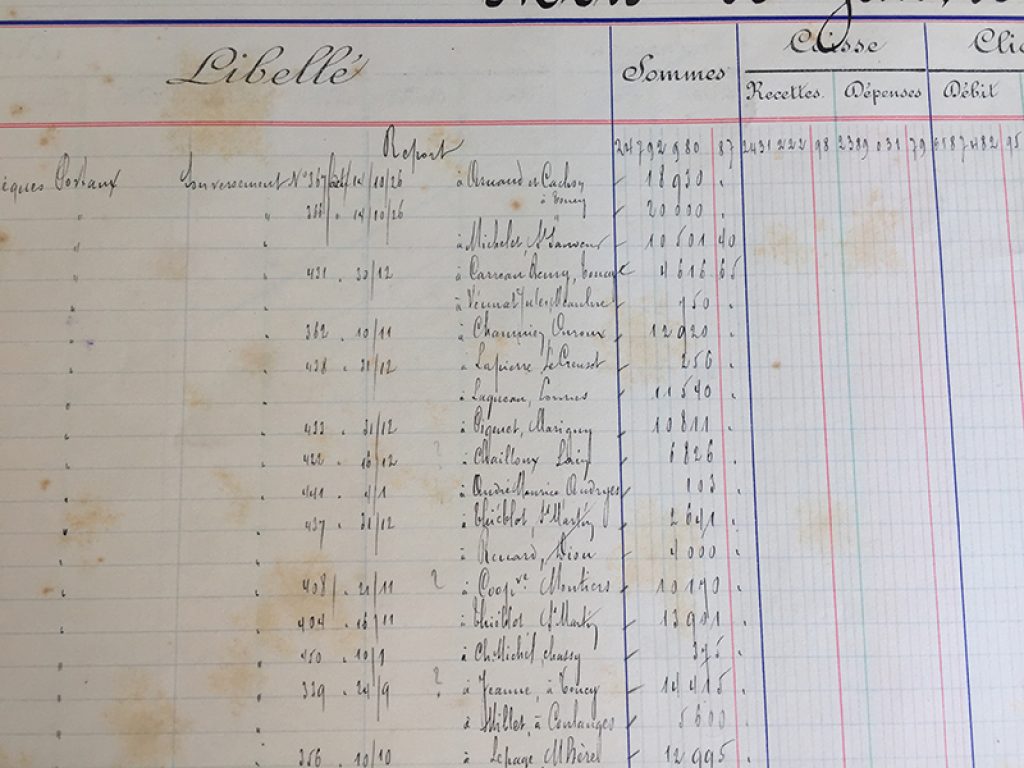 Libellé Sommes Caisse
Recettes Dépenses Débit
Report 24792980 87 2431222 98 2389031 79 6187482 95
iques Postaux Nº 367 14/10/26 à 18930 .
" " 368 . 14/10/26 à Toucy 20000 .
" " à Michelet, St Sauveur 10501 40
" " 431 . 30/12 à Carreau Remy, Toucy 4616 65
" " à 750 .
" " 362 . 10/11 à Ouroux 12920 .
" " 428 . 31/12 à Lapierre Le Creusot 256 .
" " à Laqueau, 11540 .
" " 433 . 31/12 à Piquet, Marigny 10811 .
" " 422 . 16/12 ? à Chailloux 6826 .
" " 441 . 4/1 à André Maurice Andryes 103 .
" " 437 . 31/12 à Thiéblot, St Martin 2641 .
" " à Renard, Dion 4000 .
" " 408 . 21/11 ? à Coopve Moutiers 10170 .
" " 404 . 16/11 à Thiéblot St Martin 13901 .
" " 450 . 10/1 à Ch. Michel, chassy 375 .
" " 339 . 24/9 ? à Jeanne, à Toucy 14415 .
" à Millet, à Coulanges 5600 .
" 356 . 10/10 à Lepage, 12995 .